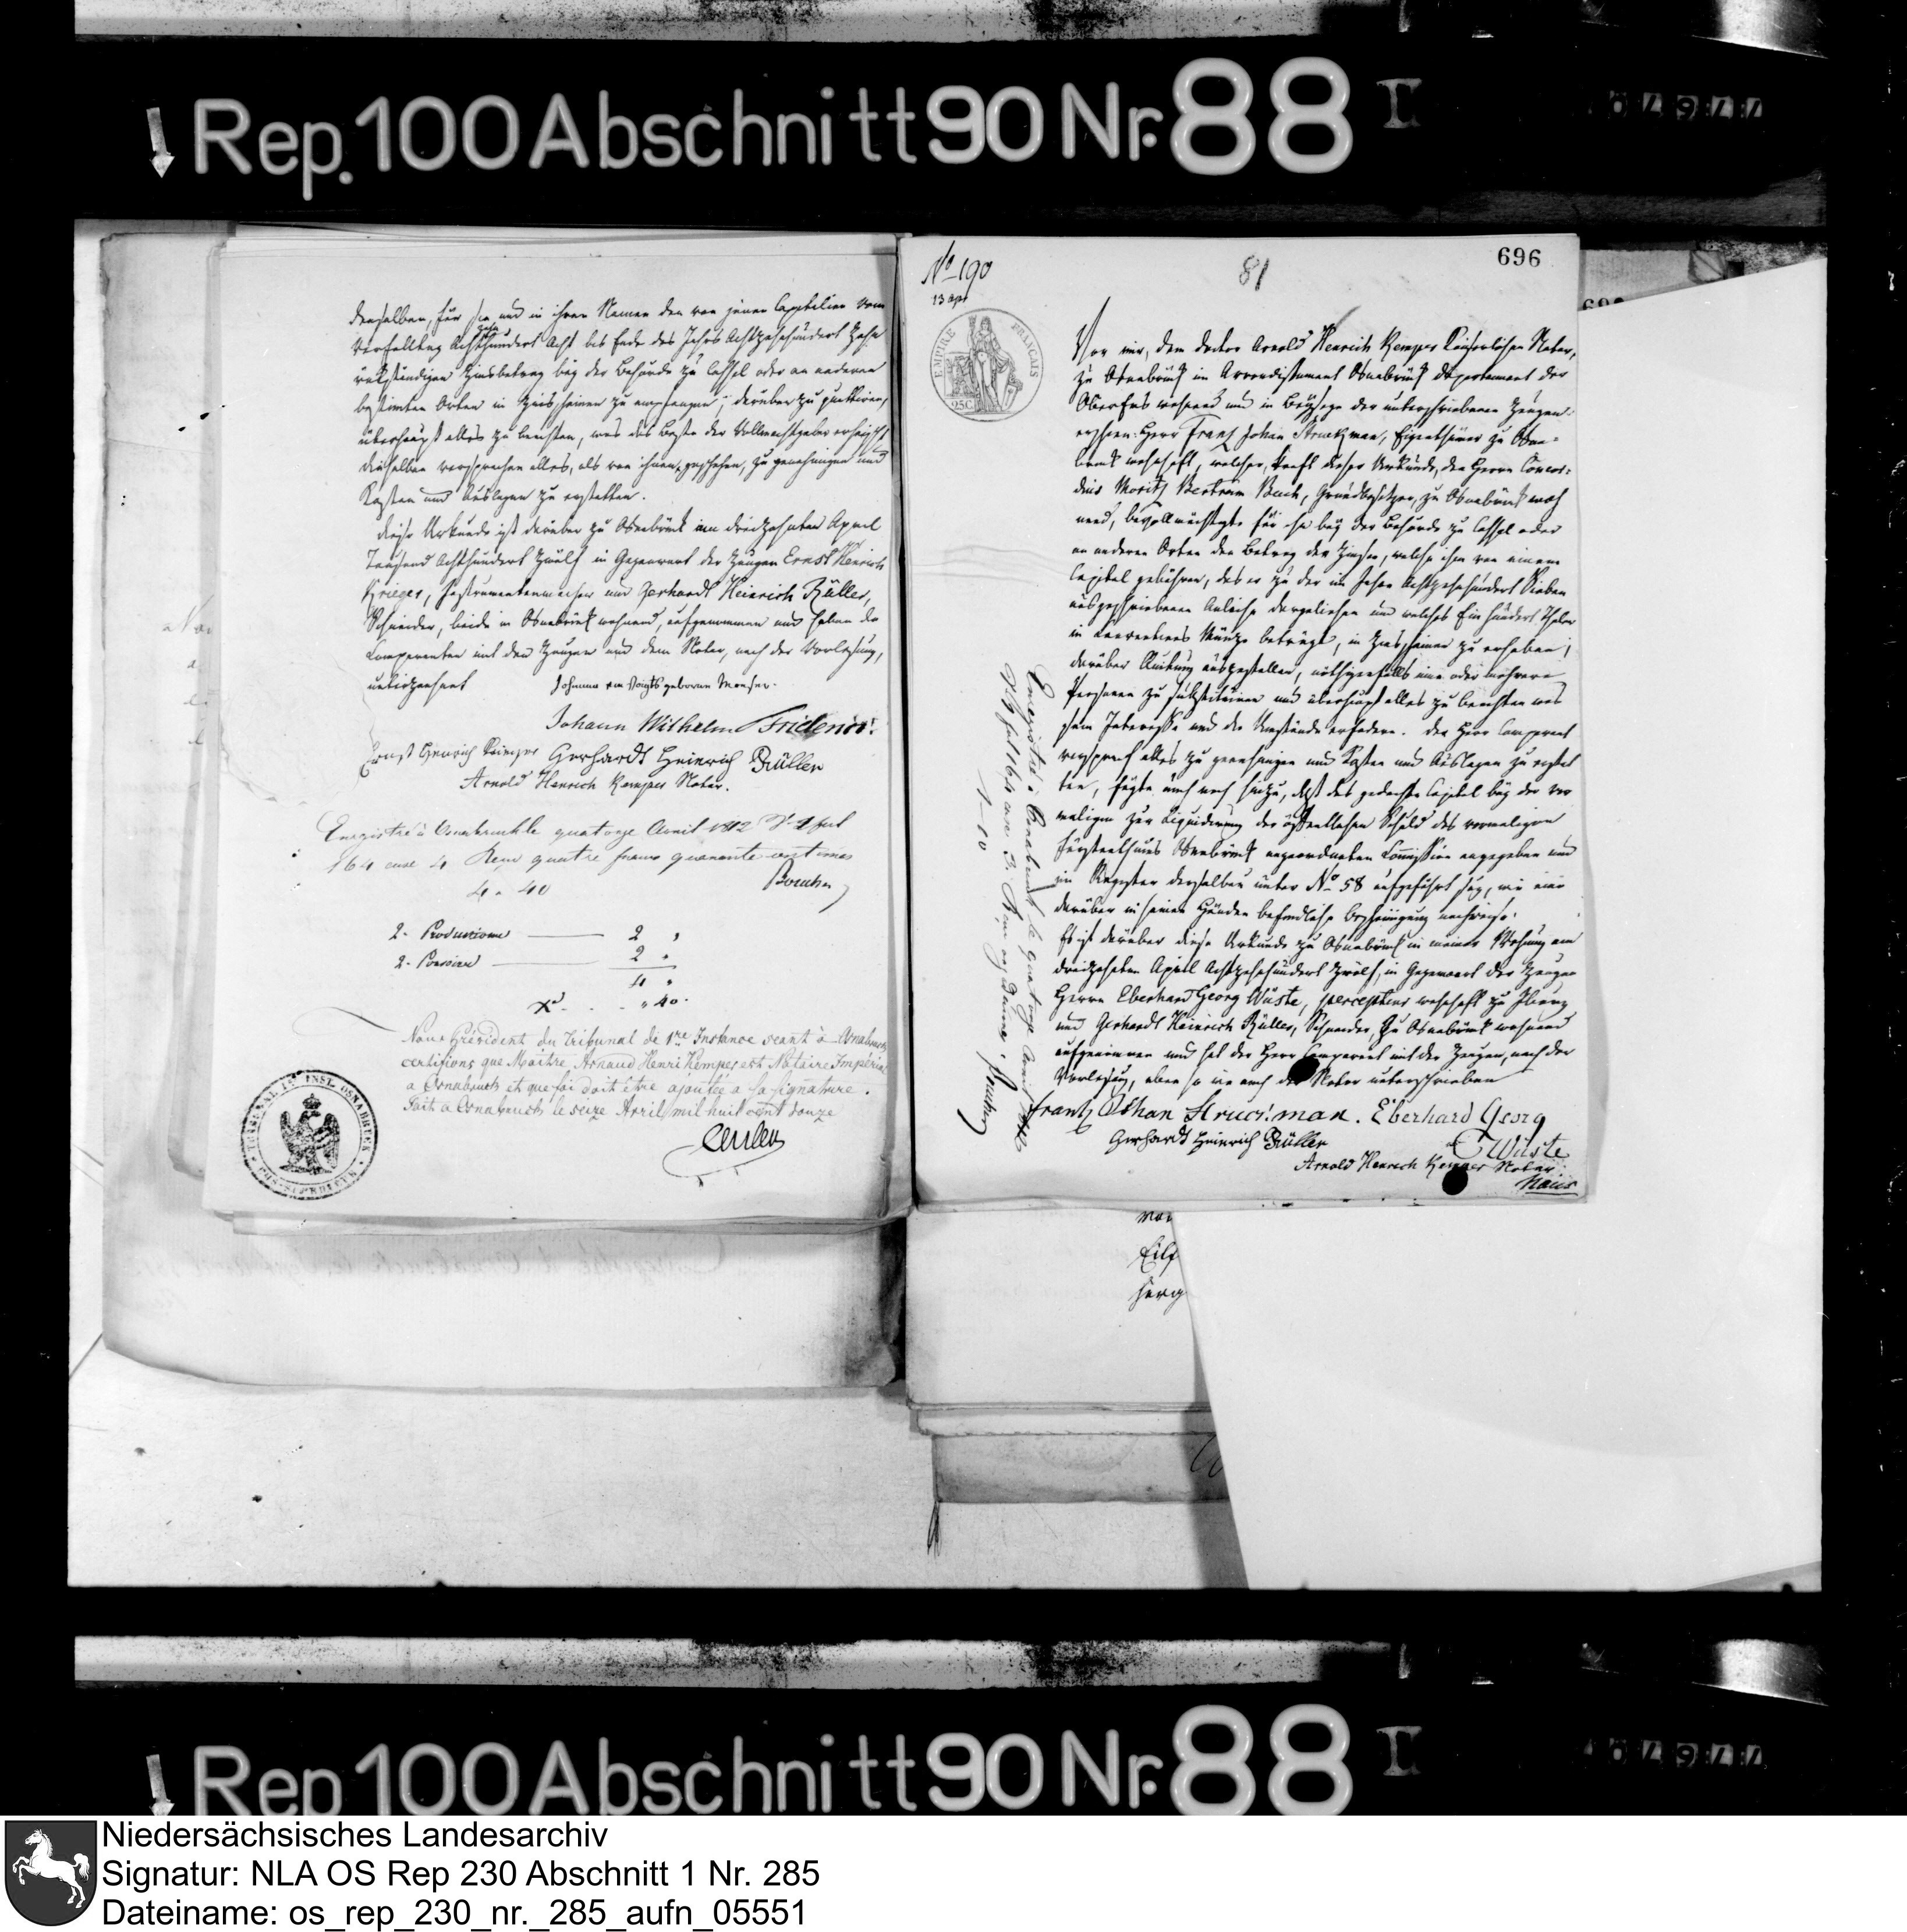 Rep. 100 Abschnitt 90 Nr. 88 I
denselben, für sie und in ihren Namen den von jenen Capitalien vom
Verfalltag Achtzehnhundert Acht bis Ende des Jahrs Achtzehnhundert Zehn
rükständigen Zinsbetrag bey der Behörde zu Cassel oder an anderen
bestimten Orten in Zinsscheinen zu empfangen, darüber zu quittiren,
überhaupt alles zu berichten, was das Beste der Vollmachtgeber erheischt
dieselben versprechen alles, als von ihnen geschehen, zu genehmigen und
Kosten und Auslagen zu erstatten.
diese Urkunde ist darüber zu Osnabrück am dreizehnten April
Tausend Achthundert Zwölf in Gegenwart der Zeugen Ernst Henrich
Krieger, Instrumentenmacher und Gerhardt Heinrich Rüller,
Schneider, beide in Osnabrück wohnend, aufgenommen und haben die
Comparenten mit den Zeugen und dem Notar, nach der Vorlesung,
unterzeichnet
Johanna von Voigts geborene Moeser.
Johann Wilhelm Friderici
Ernst Henrich Krieger Gerhardt Heinrich Rüller
Arnold Henrich Kemper Notar.
Enregistré à Osnabruck le quatorze Avril 1812
164 case 4 Reçu quatre francs quarante centimes
4 " 40
2
2
4 "
" 40
Nous Président du Tribunal de 1re Instance séant à Osnabruck
certifions que Maître Arnaud Henri Kemper est Notaire Impérial
a Osnabruck et que foi doit être ajoutée a sa signature.
Fait a Osnabruck le seize Avril mil huit cent douze
TRIBUNAL 1E INST. OSNABRUCK
No 190
13 Apr
81
696
EMPIRE FRANÇAIS
25C
Vor mir, dem doctor Arnold Henrich Kemper Kaiserlichen Notar,
zu Osnabrück im Arrondissement Osnabrück departement der
OberEms wohnend und in Beyseyn der unterschriebenen Zeugen
erschien: Herr Franz Johan Struckman, Eigenthümer zu Osna-
brück wohnhaft, welcher, kraft dieser Urkunde, den Herrn Concor-
dius Moritz Bertram Buch, Grundbesitzer, zu Osnabrück woh
nend, bevollmächtigte für ihn bey der Behörde zu Cassel oder
an anderen Orten den Betrag der Zinsen, welche ihm von einem
Capital gebühren, das er zu der im Jahre Achtzehnhundert Sieben
ausgeschriebenen Anleihe dargeliehen und welches Ein hundert Thaler
in Münze beträgt, in Zinsscheinen zu erheben;
darüber Quitung auszustellen, nöthigenfalls eine oder mehrere
Personen zu substituiren und überhaupt alles zu berichten was
sein Interesse und die Umstände erfodern. Der Herr Comparent
versprach alles zu genehmigen und Kosten und Auslagen zu erstat
ten, fügte auch noch hinzu, daß das gedachte Capital bey der vor
maligen zur Liquidirung der öffentlichen Schuld des vormaligen
Fürstenthums Osnabrück angeordneten Commission angegeben und
im Register derselben unter No 58 aufgeführt sey, wie eine
darüber in seinen Händen befindliche Bescheinigung nachweise.
Es ist darüber diese Urkunde zu Osnabrück in meiner Wohnung am
dreizehnten April Achtzehnhundert Zwölf, in Gegenwart der Zeugen
Herrn Eberhard Georg Wüste, percepteur wohnhaft zu Iburg
und Gerhardt Heinrich Rüller, Schneider, zu Osnabrück wohnend
aufgenommen und hat der Herr Comparent mit den Zeugen, nach der
Vorlesung, eben so wie auch der Notar unterschrieben
Frantz Johan Struckman. Eberhard Georg
Wüste
Gerhardt Heinrich Rüller
Arnold Henrich Kemper Notar
Enregistré à Osnabruck le quatorze Avril
Rep 100 Abschnitt 90 Nr. 88 I
Niedersächsisches Landesarchiv
Signatur: NLA OS Rep 230 Abschnitt 1 Nr. 285
Dateiname: os_rep_230_nr._285_aufn_05551